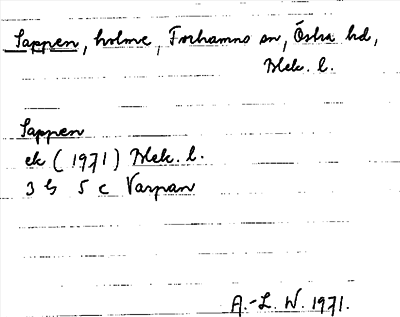 Sappen, holme, Torhamns sn, Östra hd,
Blek. l.
Sappen
ek (1971) Blek. l.
3 G 5 c Varpan
A.-L. W. 1971.